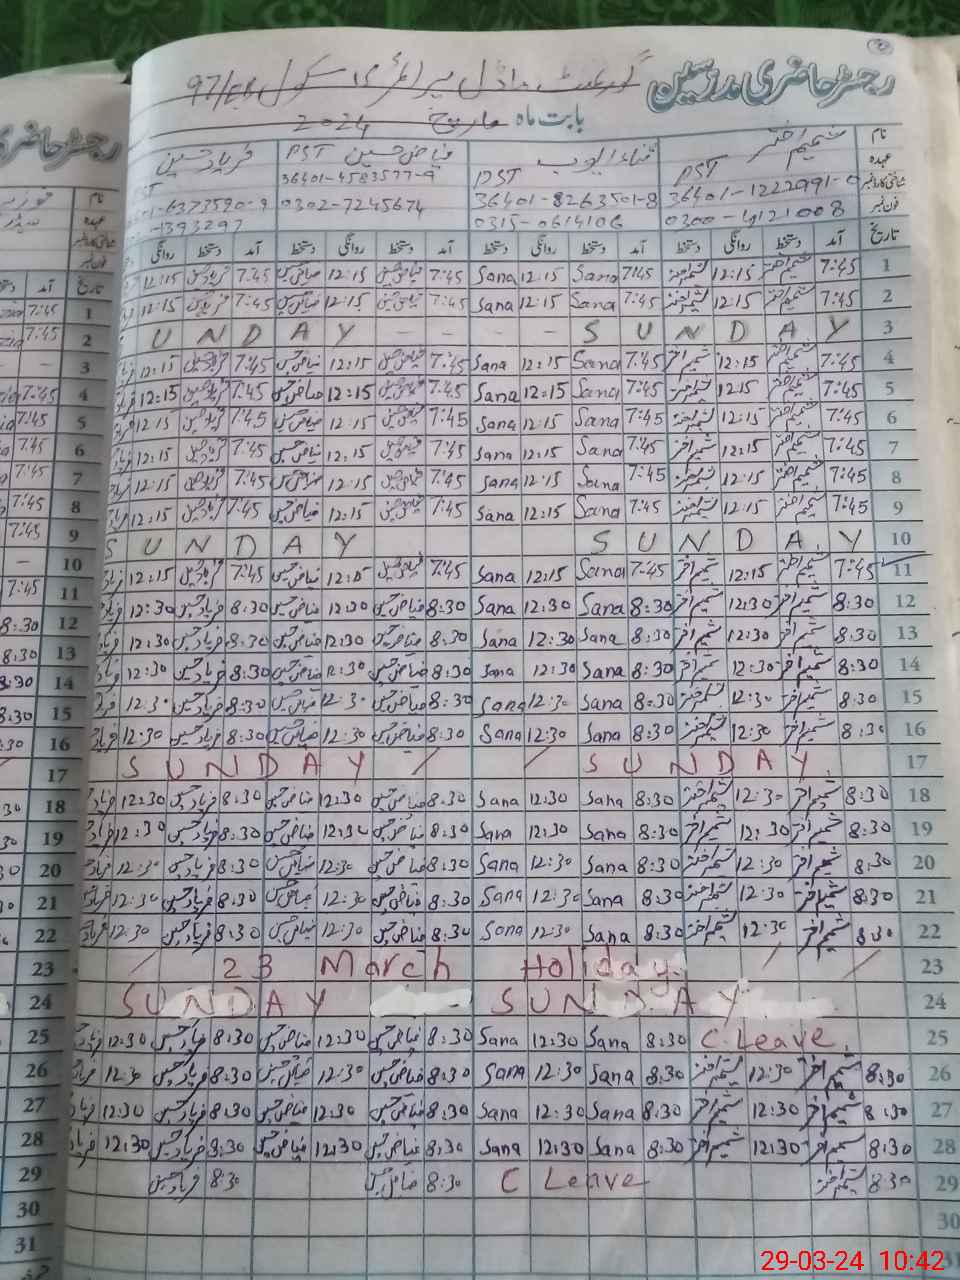 رجسٹر حاضری مدرسین
گورنمنٹ ماڈل پرائمری سکول 97/EB
بابت ماہ مارچ 2024
نام شمیم اختر ثناء ایوب فیاض حسین فریاد حسین
عہدہ PST PST PST
شناختی کارڈ نمبر 36401-1222991-0 36401-8263501-8 36401-4583577-9
فون نمبر 0300-4121008 0315-0614106 0302-7245674 1393297
تاریخ آمد دستخط روانگی دستخط آمد دستخط روانگی دستخط آمد دستخط روانگی دستخط آمد دستخط روانگی
1 7:45 شمیم اختر 12:15 شمیم اختر 7:45 Sana 12:15 Sana 7:45 فیاض حسین 12:15 فیاض حسین 7:45 فریاد حسین 12:15
2 7:45 شمیم اختر 12:15 شمیم اختر 7:45 Sana 12:15 Sana 7:45 فیاض حسین 12:15 فیاض حسین 7:45 فریاد حسین 12:15
3 SUNDAY - - - - SUNDAY
4 7:45 شمیم اختر 12:15 شمیم اختر 7:45 Sana 12:15 Sana 7:45 فیاض حسین 12:15 فیاض حسین 7:45 فریاد حسین 12:15
5 7:45 شمیم اختر 12:15 شمیم اختر 7:45 Sana 12:15 Sana 7:45 فیاض حسین 12:15 فیاض حسین 7:45 فریاد حسین 12:15
6 7:45 شمیم اختر 12:15 شمیم اختر 7:45 Sana 12:15 Sana 7:45 فیاض حسین 12:15 فیاض حسین 7:45 فریاد حسین 12:15
7 7:45 شمیم اختر 12:15 شمیم اختر 7:45 Sana 12:15 Sana 7:45 فیاض حسین 12:15 فیاض حسین 7:45 فریاد حسین 12:15
8 7:45 شمیم اختر 12:15 شمیم اختر 7:45 Sana 12:15 Sana 7:45 فیاض حسین 12:15 فیاض حسین 7:45 فریاد حسین 12:15
9 7:45 شمیم اختر 12:15 شمیم اختر 7:45 Sana 12:15 Sana 7:45 فیاض حسین 12:15 فیاض حسین 7:45 فریاد حسین 12:15
10 SUNDAY SUNDAY
11 7:45 شمیم اختر 12:15 شمیم اختر 7:45 Sana 12:15 Sana 7:45 فیاض حسین 12:15 فیاض حسین 7:45 فریاد حسین 12:15
12 8:30 شمیم اختر 12:30 شمیم اختر 8:30 Sana 12:30 Sana 8:30 فیاض حسین 12:30 فیاض حسین 8:30 فریاد حسین 12:30
13 8:30 شمیم اختر 12:30 شمیم اختر 8:30 Sana 12:30 Sana 8:30 فیاض حسین 12:30 فیاض حسین 8:30 فریاد حسین 12:30
14 8:30 شمیم اختر 12:30 شمیم اختر 8:30 Sana 12:30 Sana 8:30 فیاض حسین 12:30 فیاض حسین 8:30 فریاد حسین 12:30
15 8:30 شمیم اختر 12:30 شمیم اختر 8:30 Sana 12:30 Sana 8:30 فیاض حسین 12:30 فیاض حسین 8:30 فریاد حسین 12:30
16 8:30 شمیم اختر 12:30 شمیم اختر 8:30 Sana 12:30 Sana 8:30 فیاض حسین 12:30 فیاض حسین 8:30 فریاد حسین 12:30
17 SUNDAY SUNDAY
18 8:30 شمیم اختر 12:30 شمیم اختر 8:30 Sana 12:30 Sana 8:30 فیاض حسین 12:30 فیاض حسین 8:30 فریاد حسین 12:30
19 8:30 شمیم اختر 12:30 شمیم اختر 8:30 Sana 12:30 Sana 8:30 فیاض حسین 12:30 فیاض حسین 8:30 فریاد حسین 12:30
20 8:30 شمیم اختر 12:30 شمیم اختر 8:30 Sana 12:30 Sana 8:30 فیاض حسین 12:30 فیاض حسین 8:30 فریاد حسین 12:30
21 8:30 شمیم اختر 12:30 شمیم اختر 8:30 Sana 12:30 Sana 8:30 فیاض حسین 12:30 فیاض حسین 8:30 فریاد حسین 12:30
22 8:30 شمیم اختر 12:30 شمیم اختر 8:30 Sana 12:30 Sana 8:30 فیاض حسین 12:30 فیاض حسین 8:30 فریاد حسین 12:30
23 23 March Holiday
24 SUNDAY SUNDAY
25 C.Leave 8:30 Sana 12:30 Sana 8:30 فیاض حسین 12:30 فیاض حسین 8:30 فریاد حسین 12:30
26 8:30 شمیم اختر 12:30 شمیم اختر 8:30 Sana 12:30 Sana 8:30 فیاض حسین 12:30 فیاض حسین 8:30 فریاد حسین 12:30
27 8:30 شمیم اختر 12:30 شمیم اختر 8:30 Sana 12:30 Sana 8:30 فیاض حسین 12:30 فیاض حسین 8:30 فریاد حسین 12:30
28 8:30 شمیم اختر 12:30 شمیم اختر 8:30 Sana 12:30 Sana 8:30 فیاض حسین 12:30 فیاض حسین 8:30 فریاد حسین 12:30
29 8:30 شمیم اختر C Leave 8:30 فیاض حسین 8:30 فریاد حسین
30
31
29-03-24 10:42